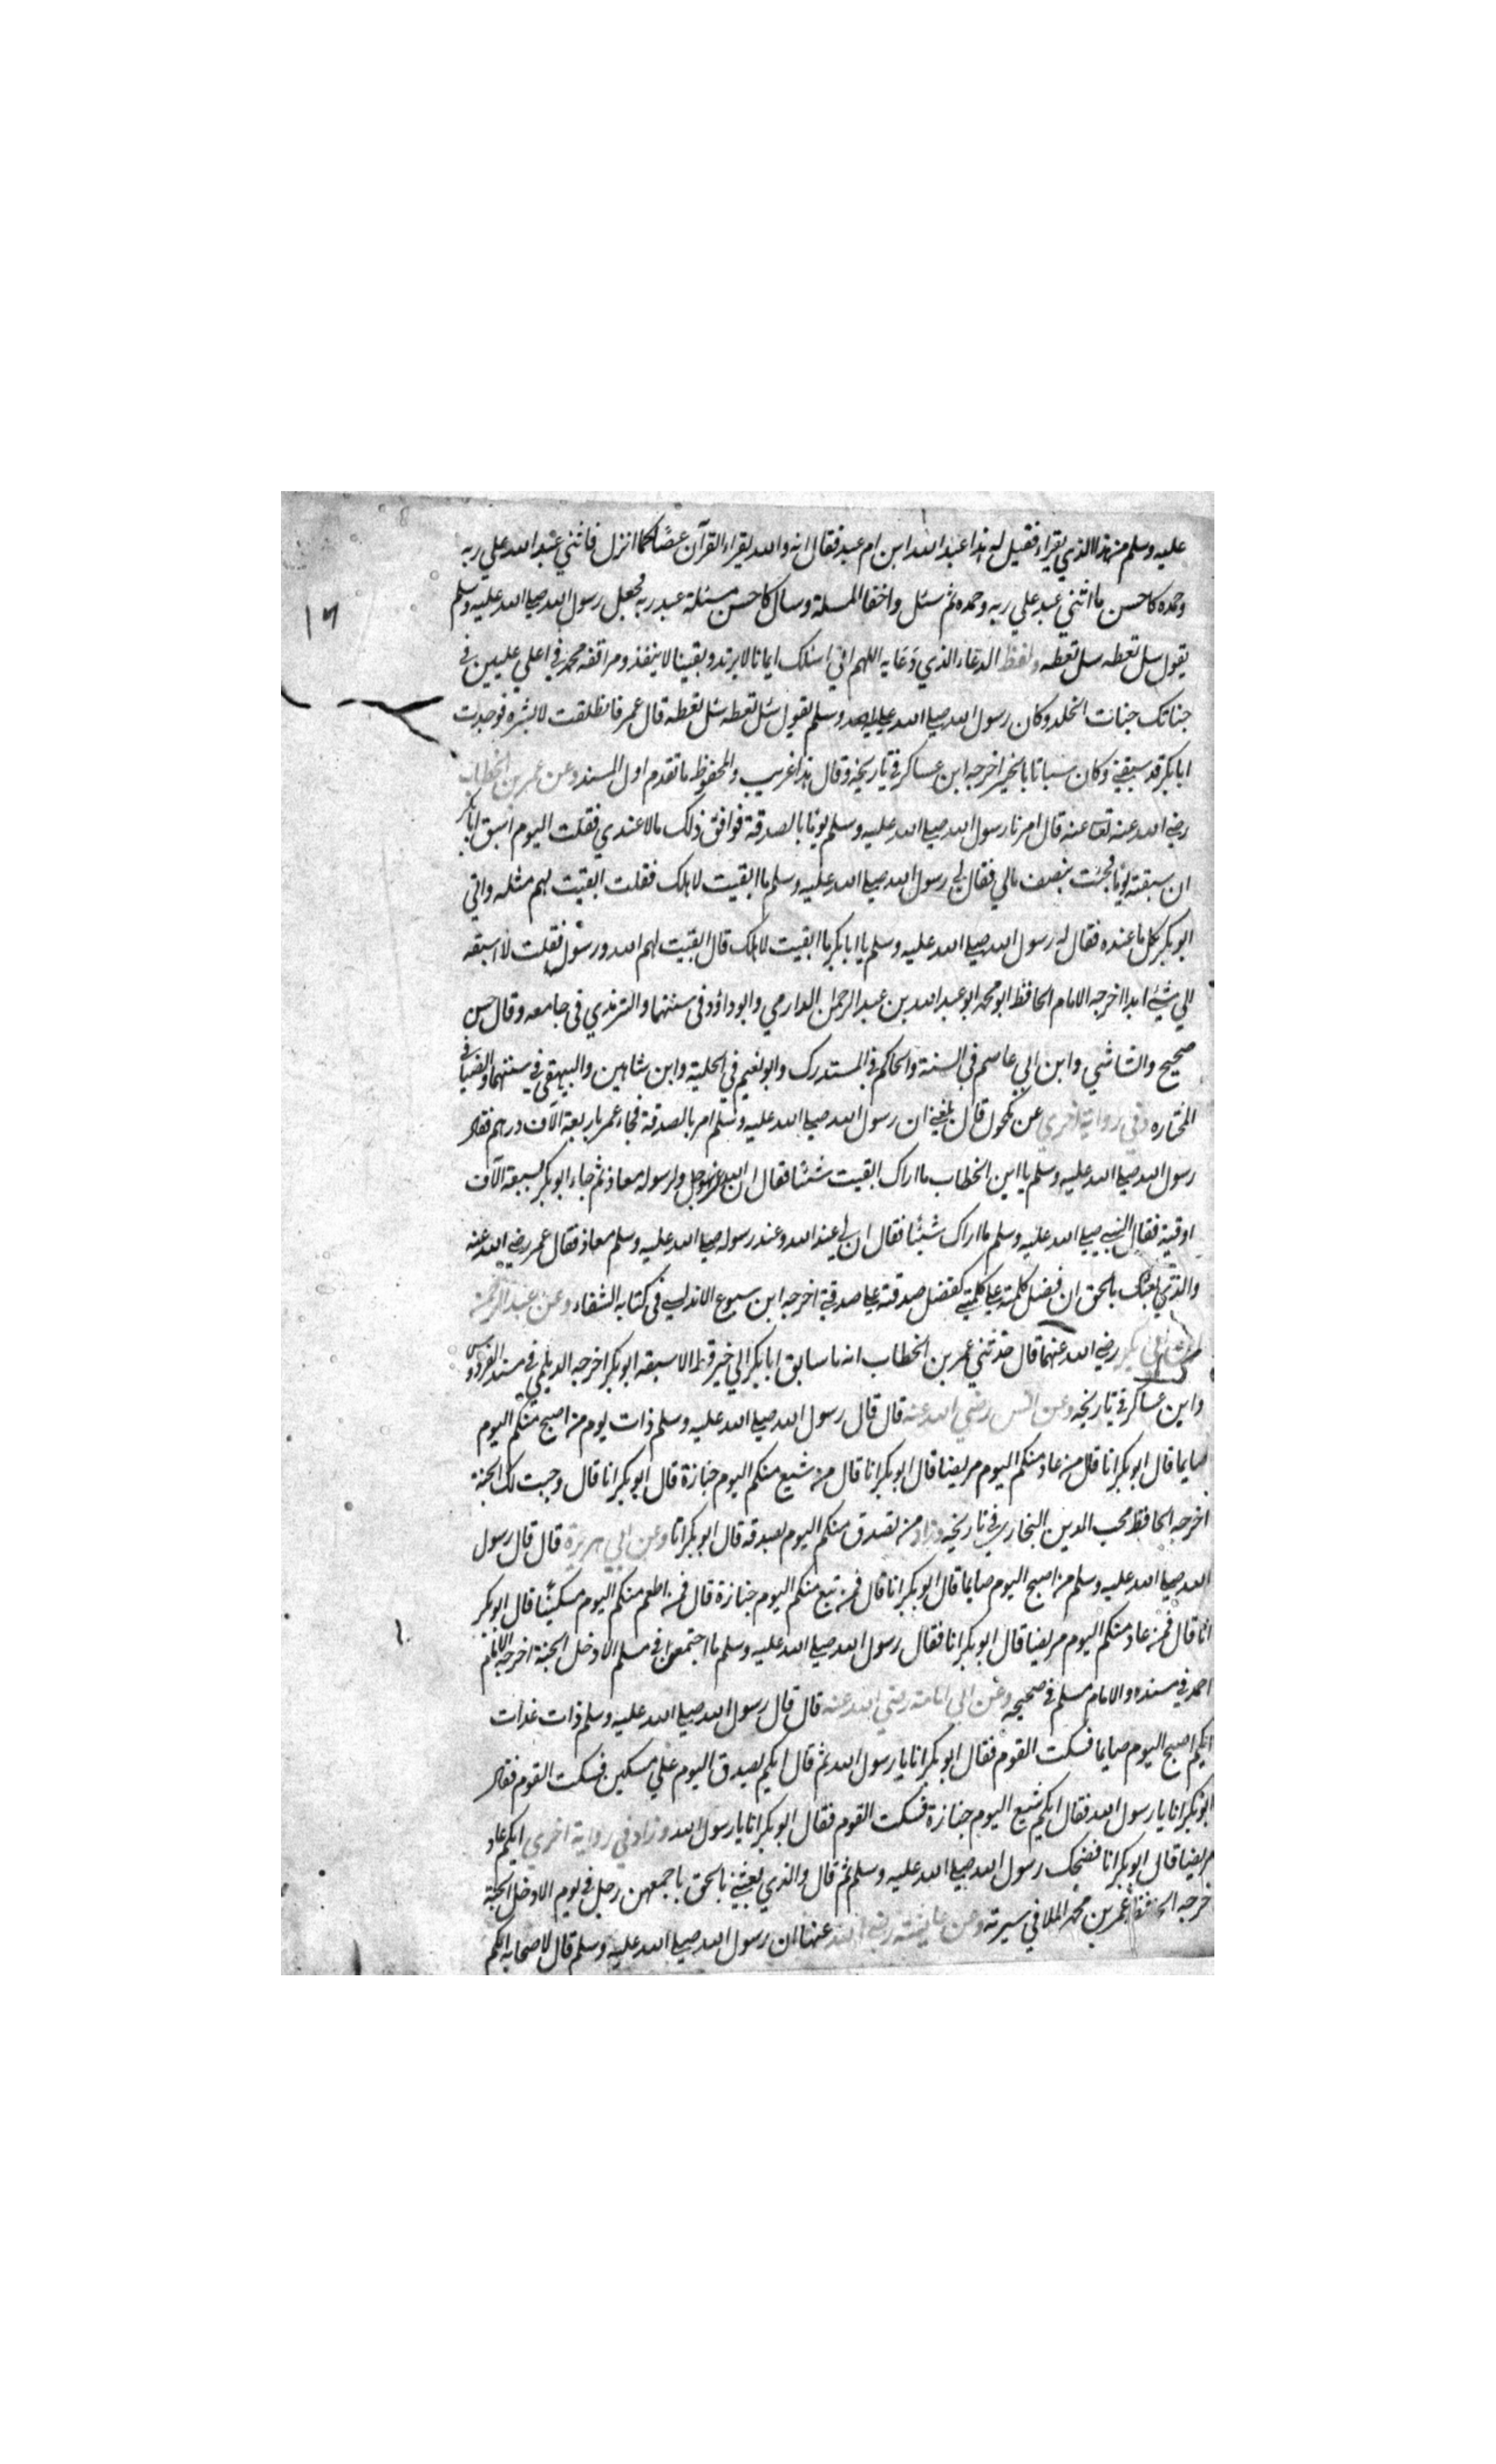 عليه وسلم من هذا الذي يقراء فقيل له هذا عبد الله ابن ام عبد فقال انه والله يقراء القرآن غضا كما انزل فاثني عبد الله علي ربه
وحمده كاحسن ما اثني عبد علي ربه وحمده ثم سئل واخفا المسلة وسال كاحسن مسئلة عبد ربه فجعل رسول الله صلي الله عليه وسلم
يقول سل تعطه سل تعطه ولفظ الدعاء الذي دعا به اللهم اني اسئلك ايمانا لا يرتد ويقينا لا ينفذ ومرافقه محمد في اعلي عليين في
جناتك جنات الخلد وكان رسول الله صلي الله عليه وسلم يقول سئل تعطه سئل تعطه قال عمر فانطلقت لابشره فوجدت
ابابكر قد سبقني وكان سباقا بالخير اخرجه ابن عساكر في تاريخه وقال هذا غريب والمحفوظ ما تقدم اول المسند وعن عمر بن الخطاب
رضي الله عنه قال امرنا رسول الله صلي الله عليه وسلم يوما بالصدقة فوافق ذلك مالا عندي فقلت اليوم اسبق ابابكر
ان سبقته يوما فجئت بنصف مالي فقال لي رسول الله صلي الله عليه وسلم ما ابقيت لاهلك فقلت ابقيت لهم مثله واتي
ابوبكر بكل ما عنده فقال له رسول الله صلي الله عليه وسلم يا ابابكر ما ابقيت لاهلك قال ابقيت لهم الله ورسوله فقلت لا اسبقه
الي شيئ ابدا اخرجه الامام الحافظ ابو محمد ابو عبد الله بن عبد الرحمن الدارمي وابو داؤد في سننهما والترمذي في جامعه وقال حسن
صحيح والشاشي وابن ابي عاصم في السنة والحاكم في المستدرك وابو نعيم في الحلية وابن شاهين والبيهقي في سننهما والضيا في
المختاره وفي رواية اخري عن مكحول قال بلغني ان رسول الله صلي الله عليه وسلم امر بالصدقة فجاء عمر باربعة الآف درهم فقال
رسول الله صلي الله عليه وسلم يا ابن الخطاب ما اراك ابقيت شئيا فقال ان لله عز وجل ولرسوله معاذ ثم جاء ابوبكر بسبعة الآف
اوقية فقال النبي صلي الله عليه وسلم ما اراك شيئا فقال ان لي عند الله وعند رسوله صلي الله عليه وسلم معاذ فقال عمر رضي الله عنه
والذي بعثك بالحق ان فضل كلمته علي كلمتي كفضل صدقته علي صدقتي اخرجه ابن سبوع الاندلسي في كتابه الشفاء وعن عبد الرحمن
ابن ابي بكر رضي الله عنهما قال حدثني عمر بن الخطاب انه ما سابق ابابكر الي خير قط الا سبقه ابوبكر اخرجه الديلمي في مسند الفردوس
وابن عساكر في تاريخه وعن انس رضي الله عنه قال قال رسول الله صلي الله عليه وسلم ذات يوم من اصبح منكم اليوم
صايما قال ابوبكر انا قال من عاد منكم اليوم مريضا قال ابوبكر انا قال من شيع منكم اليوم جنازة قال ابوبكر انا قال وجبت لك الجنة
اخرجه الحافظ محب الدين النجار في تاريخه وزاد من تصدق منكم اليوم بصدقه قال ابوبكر انا وعن ابي هريرة قال قال رسول
الله صلي الله عليه وسلم من اصبح اليوم صايما قال ابوبكر انا قال فمن تبع منكم اليوم جنازة قال فمن اطعم منكم اليوم مسكينا قال ابوبكر
انا قال فمن عاد منكم اليوم مريضا قال ابوبكر انا فقال رسول الله صلي الله عليه وسلم ما اجتمعن في مسلم الا دخل الجنة اخرجه الامام
احمد في مسنده والامام مسلم في صحيحه وعن ابي امامة رضي الله عنه قال قال رسول الله صلي الله عليه وسلم ذات غدات
ايكم اصبح اليوم صايما فسكت القوم فقال ابوبكر انا يا رسول الله ثم قال ايكم تصدق اليوم علي مسكين فسكت القوم فقال
ابوبكر انا يا رسول الله فقال ايكم شيع اليوم جنازة فسكت القوم فقال ابوبكر انا يا رسول الله وزاد في رواية اخري ايكم عاد
مريضا قال ابوبكر انا فضحك رسول الله صلي الله عليه وسلم ثم قال والذي بعثني بالحق ما جمعهن رجل في يوم الا دخل الجنة
خرجه الحافظ عمر بن محمد الملا في سيرته وعن عايشة رضي الله عنها ان رسول الله صلي الله عليه وسلم قال لاصحابه ايكم